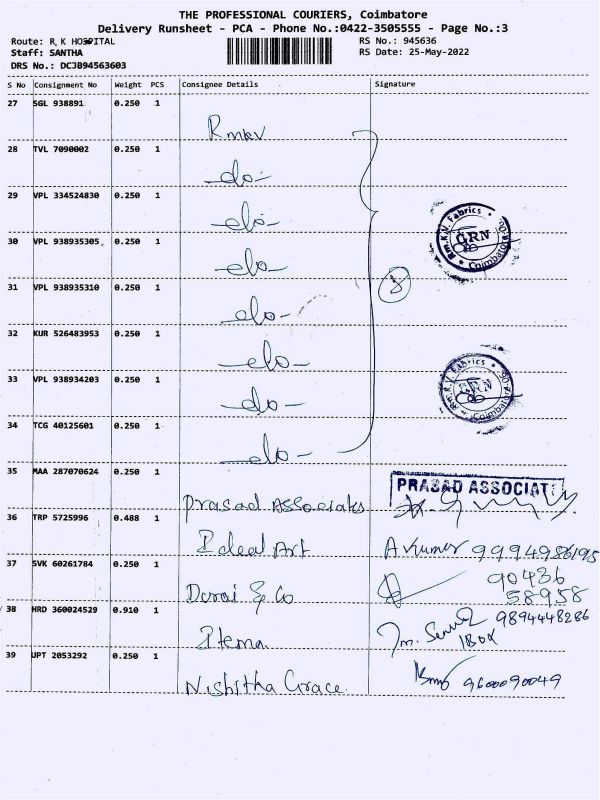 THE PROFESSIONAL COURIERS, Coimbatore
Delivery Runsheet - PCA - Phone No.:0422-3505555 - Page No.:3
Route: R.K HOSPITAL
RS No.: 945636
Staff: SANTHA
RS Date: 25-May-2022
DRS No.: DCJB94563603
S No Consignment No Weight PCS Consignee Details Signature
27 SGL 938891 0.250 1
Rmkv
28 TVL 7090002 0.250 1
-do-
29 VPL 334524830 0.250 1
-do-
Rm.K.V. Fabrics
GRN
Coimbatore
30 VPL 938935305 0.250 1
-do-
31 VPL 938935310 0.250 1
8
-do-
32 KUR 526483953 0.250 1
-do-
Rm.K.V. Fabrics
GRN
Coimbatore
33 VPL 938934203 0.250 1
-do-
34 TCG 40125601 0.250 1
-do-
35 MAA 287070624 0.250 1
PRASAD ASSOCIAT
Prasad Associates
36 TRP 5725996 0.488 1
Ideal Art A Kumar 9994986195
37 SVK 60261784 0.250 1
90436
58958
Durai & Co
38 HRD 360024529 0.910 1
9894448286
Item 1 Box
39 JPT 2053292 0.250 1
9600090049
Nishitha Grace